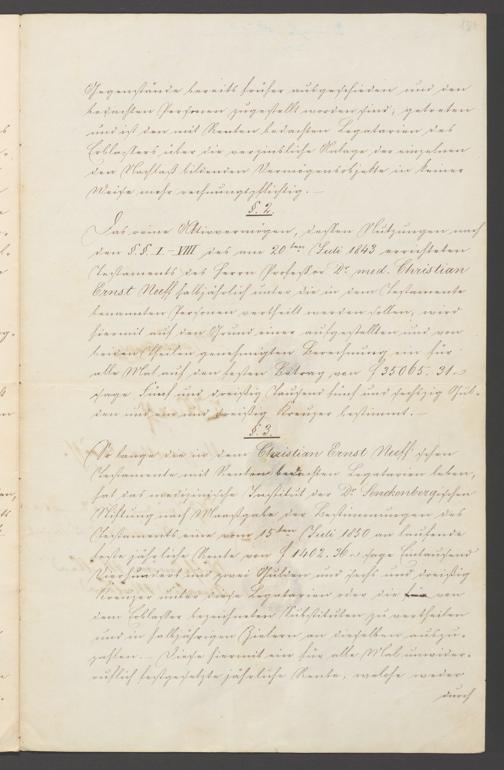 Gegenstände bereits früher ausgeschieden und den
bedachten Personen zugestellt worden sind, getreten
und ist den mit Renten bedachten Legatarien des
Erblassers über die verzinsliche Anlage der einzelnen
den Nachlaß bildenden Vermögensobjekte in keiner
Weise mehr rechnungspflichtig. —
§. 2.
Das reine Aktivvermögen, dessen Nutzungen nach
den §.§. I–VIII des am 20ten Juli 1843 errichteten
Testaments des Herrn Professor Dr. med. Christian
Ernst Neeff halbjährlich unter die in dem Testamente
benannten Personen vertheilt werden sollen, wird
hiermit auf den Grund einer aufgestellten und von
beiden Theilen genehmigten Berechnung ein für
alle Mal auf den festen Betrag von f 35065. 31
sage Fünf und dreißig Tausend fünf und sechzig Gul-
den und ein und dreißig Kreuzer bestimmt. —
§ 3.
So lange die in dem Christian Ernst Neeff'schen
Testamente mit Renten bedachten Legatarien leben,
hat das medizinische Institut der Dr. Senckenbergischen
Stiftung nach Maasgabe der Bestimmungen des
Testaments eine vom 15ten Juli 1850 an laufende
feste jährliche Rente von f 1402. 36 sage Eintausend
Vierhundert und zwei Gulden und sechs und dreißig
Kreuzer unter diese Legatarien oder die von
dem Erblasser bezeichneten Substituten zu vertheilen
und in halbjährigen Zielern an dieselben auszu-
zahlen. — Diese hiermit ein für alle Mal unwider-
ruflich festgesetzte jährliche Rente, welche weder
durch